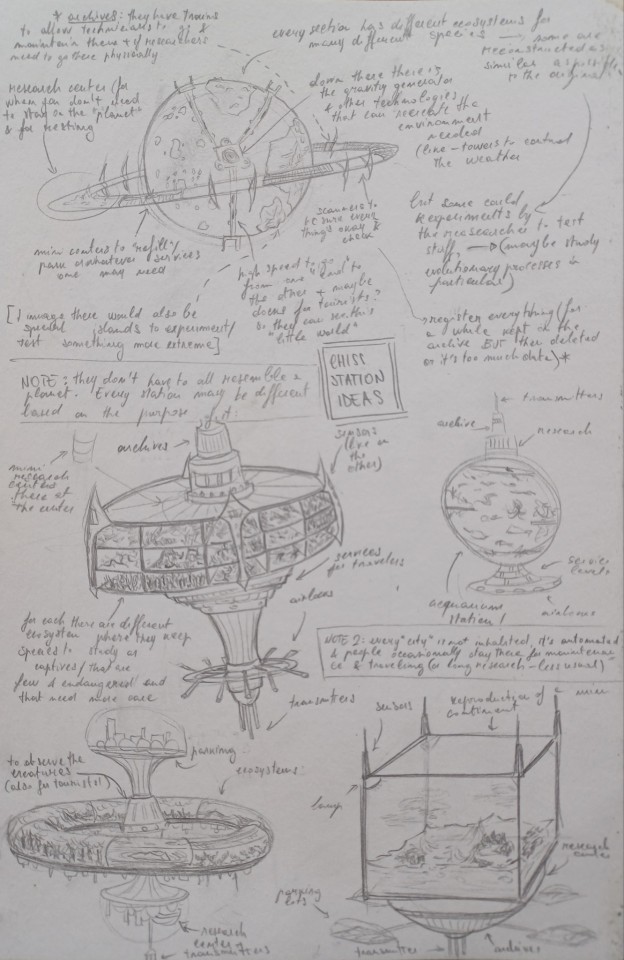 * archives: they have trains
to allow technicians to go &
maintain them & if researchers
need to go there physically
every section has different ecosystems for
many different species → some are
reconstructed as
similar as possible
to the original
research center (for
when you don't need
to stay on the "planet"
& for resting
down there there is
the gravity generator
& other technologies
that can recreate the
environment
needed
(line-towers to control
the weather
but some could
experiments by
the researcher to test
stuff, → (maybe study
evolutionary processes in
particular)
scanners to
be sure every
thing's okay &
check
mini centers to "refill",
park or whatever services
one may need
high speed to go
from one end to
the other + maybe
for tourists?
so they can see this
"little world"
[I image there would also be
special islands to experiment/
test something more extreme]
register everything (for
a while kept in the
archive BUT then deleted
or it's too much data)*
CHISS
STATION
IDEAS
NOTE: they don't have to all resemble a
planet. Every station may be different
based on the purpose
archives
sensors
(like in
the
other)
mini
research
centers
there at
the center
transmitters
archive
research
services
for travelers
airlocks
service
levels
acquarium
station!
airlocks
for each there are different
ecosystem where they keep
species to study as
captives/that are
few & endangered and
that need more care
NOTE 2: every "city" is not inhabited, it's automated
& people occasionally stay there for maintenan
ce & traveling (or long research - less usual)
transmitters
sensors
reproduction of a
continent
parking
to observe the
creatures
(also for tourists!)
ecosystems
lamp
research
center
parking
lots
research
center
transmitters
transmitter
archives